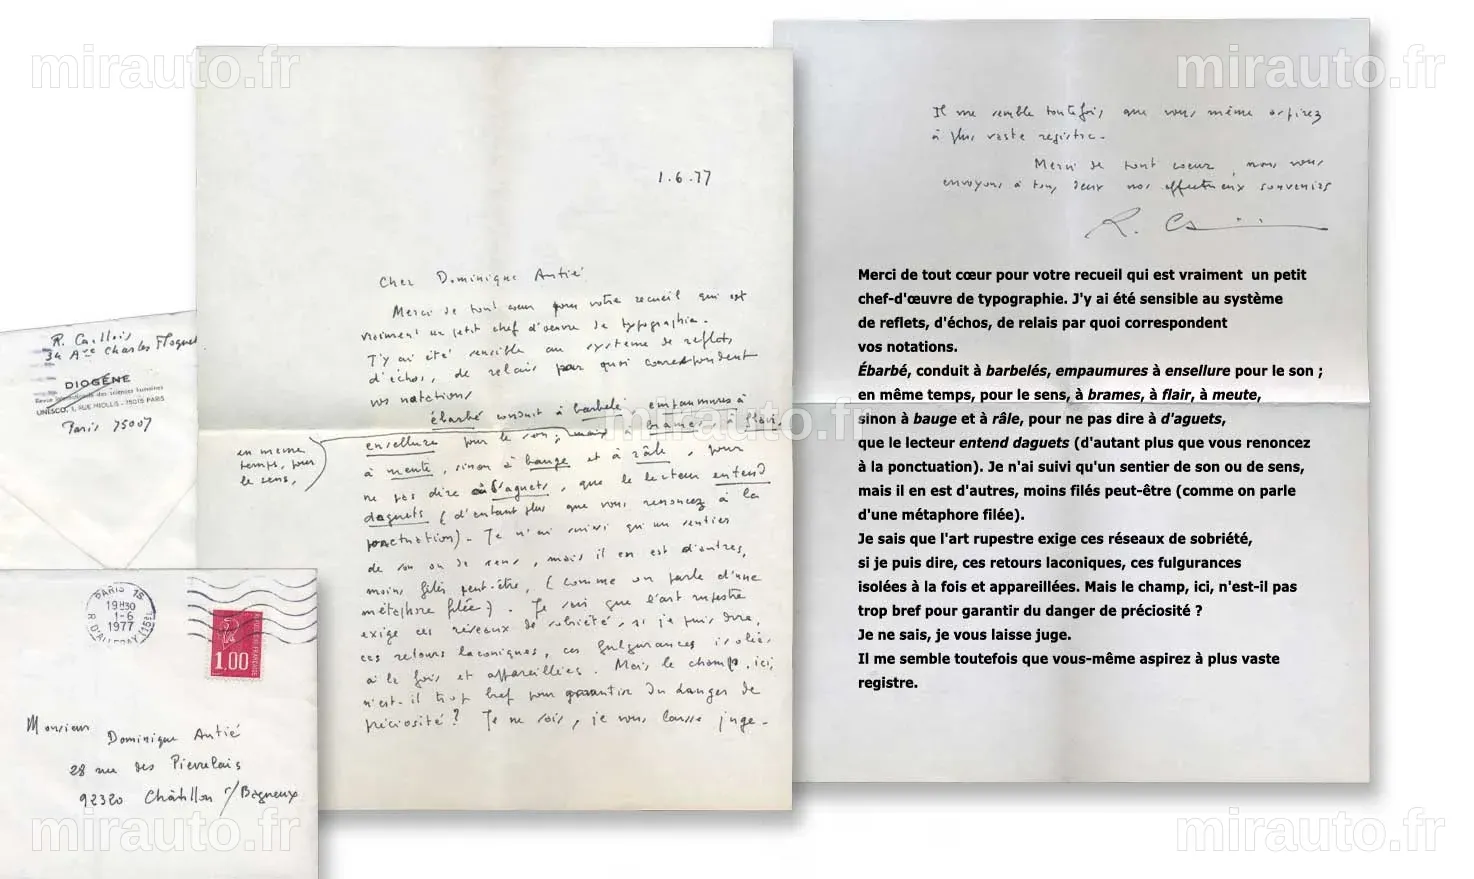 mirauto.fr
mirauto.fr
R. Caillois
34 Ave Charles Floquet
DIOGÈNE
Revue internationale des sciences humaines
UNESCO, 1, RUE MIOLLIS - 75015 PARIS
Paris 75007
PARIS 15
19H30
1-6
1977
R. D'ALLERAY (15e)
1,00
Monsieur Dominique Antié
28 rue des Pierrelais
92320 Châtillon s/Bagneux
mirauto.fr
1.6.77
Cher Dominique Antié
Merci de tout cœur pour votre recueil qui est
vraiment un petit chef d'œuvre de typographie.
J'y ai été sensible au système de reflets
d'échos, de relais par quoi correspondent
vos notations
ébarbé conduit à barbelé empaumures à
ensellure pour le son ; mais brames à flair,
en même
temps, pour
le sens,
à meute, sinon à bauge et à râle, pour
ne pas dire à d'aguets, que le lecteur entend
daguets (d'autant plus que vous renoncez à la
ponctuation). Je n'ai suivi qu'un sentier
de son ou de sens, mais il en est d'autres,
moins filés peut-être, (comme on parle d'une
métaphore filée). Je sais que l'art rupestre
exige ces réseaux de sobriété, si je puis dire,
ces retours laconiques, ces fulgurances isolées
à la fois et appareillées. Mais le champ, ici,
n'est-il trop bref pour garantir du danger de
préciosité ? Je ne sais, je vous laisse juge.
mirauto.fr
Il me semble toutefois, que vous même aspirez
à plus vaste registre.
Merci de tout coeur, nous vous
envoyons à tous deux nos affectueux souvenirs
R. Caillois
Merci de tout cœur pour votre recueil qui est vraiment un petit
chef-d'œuvre de typographie. J'y ai été sensible au système
de reflets, d'échos, de relais par quoi correspondent
vos notations.
Ébarbé, conduit à barbelés, empaumures à ensellure pour le son ;
en même temps, pour le sens, à brames, à flair, à meute,
sinon à bauge et à râle, pour ne pas dire à d'aguets,
que le lecteur entend daguets (d'autant plus que vous renoncez
à la ponctuation). Je n'ai suivi qu'un sentier de son ou de sens,
mais il en est d'autres, moins filés peut-être (comme on parle
d'une métaphore filée).
Je sais que l'art rupestre exige ces réseaux de sobriété,
si je puis dire, ces retours laconiques, ces fulgurances
isolées à la fois et appareillées. Mais le champ, ici, n'est-il pas
trop bref pour garantir du danger de préciosité ?
Je ne sais, je vous laisse juge.
Il me semble toutefois que vous-même aspirez à plus vaste
registre.
mirauto.fr